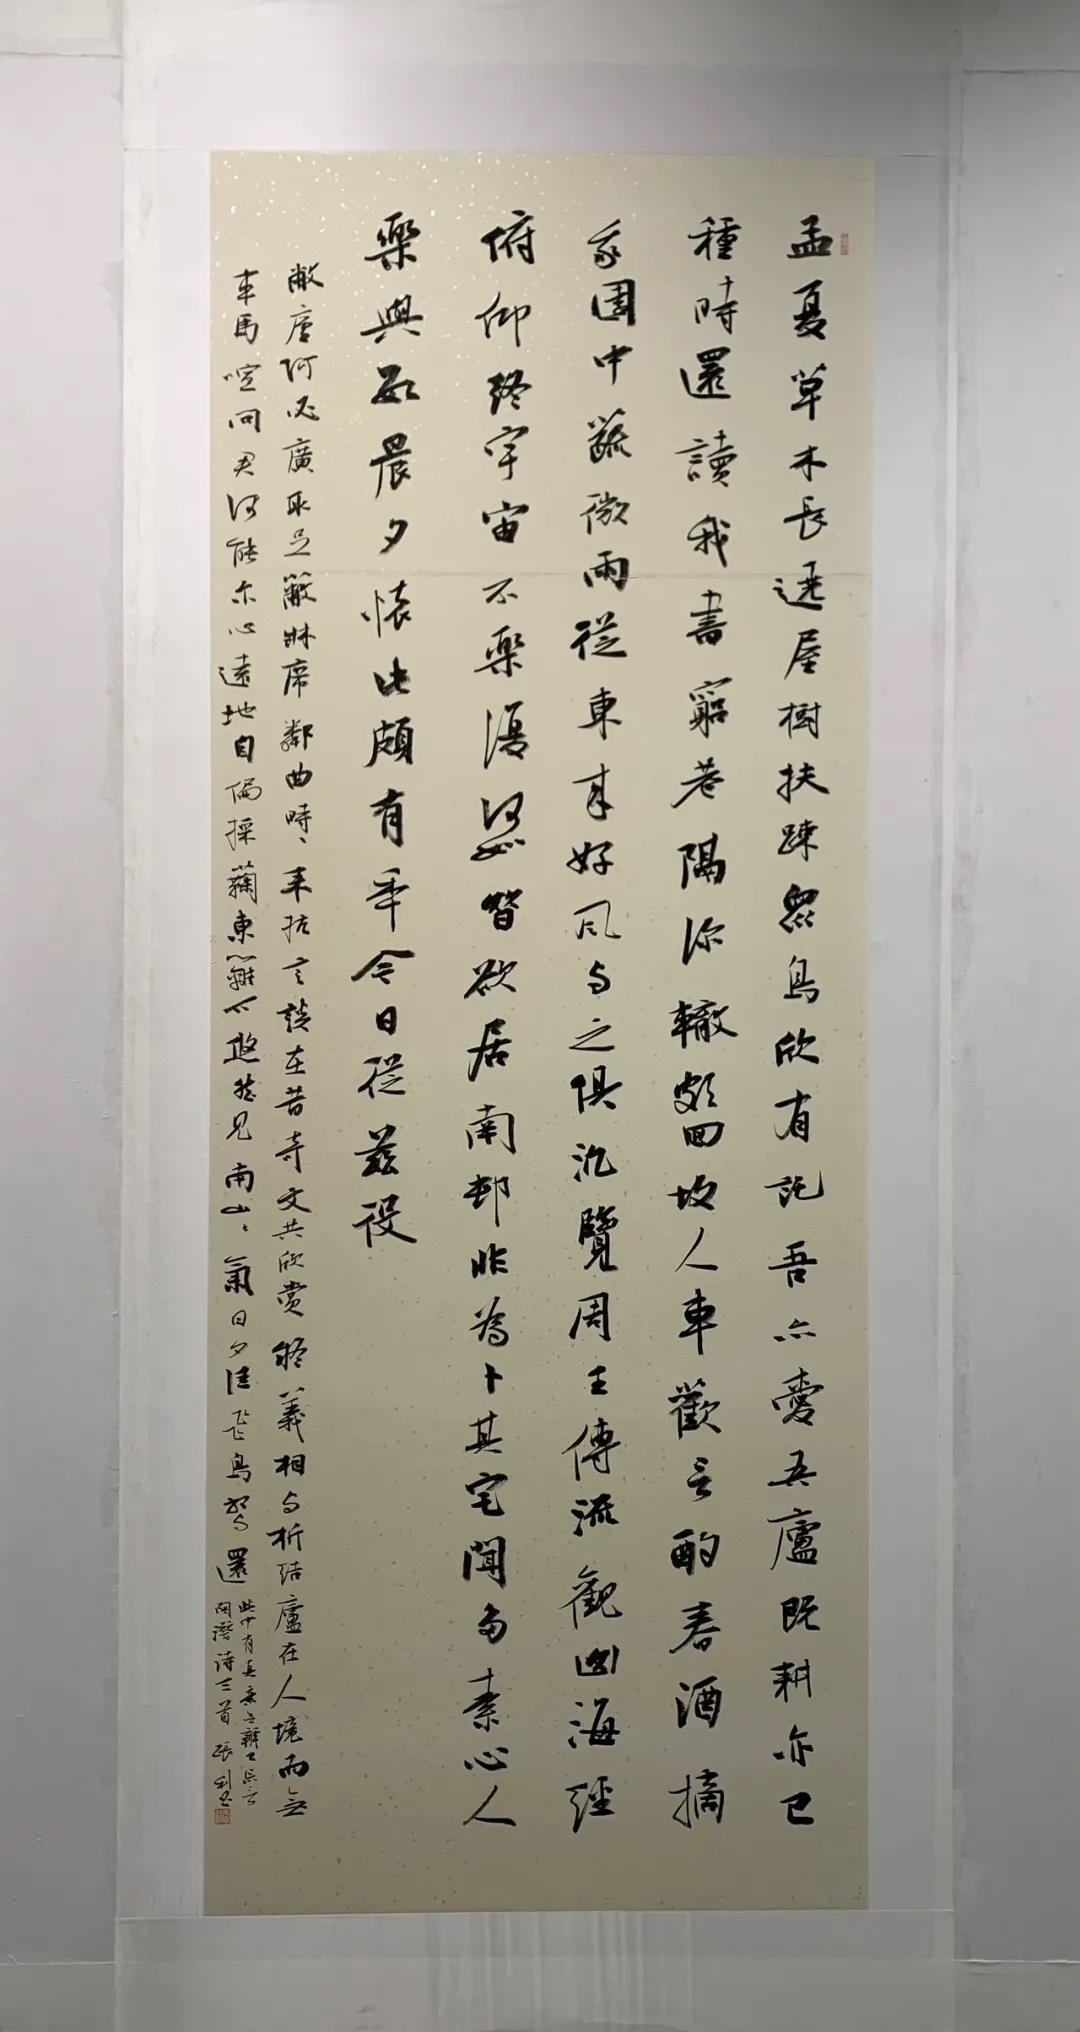 孟夏草木長遶屋樹扶踈眾鳥欣有託吾亦愛吾廬既耕亦已
種時還讀我書窮巷隔深轍頗回故人車歡言酌春酒摘
我園中蔬微雨從東來好风与之俱汎覽周王傳流觀山海經
俯仰終宇宙不樂復何如昔欲居南邨非為卜其宅聞多素心人
樂與數晨夕懷此頗有年今日從茲役
敝廬何必廣取足蔽牀席鄰曲時〻来抗言談在昔奇文共欣賞疑義相与析結廬在人境而無
車馬喧問君何能尔心遠地自偏採菊東籬下悠然見南山〻氣日夕佳飛鳥相与還
此中有真意欲辨已忘言
陶潛詩三首 張利書